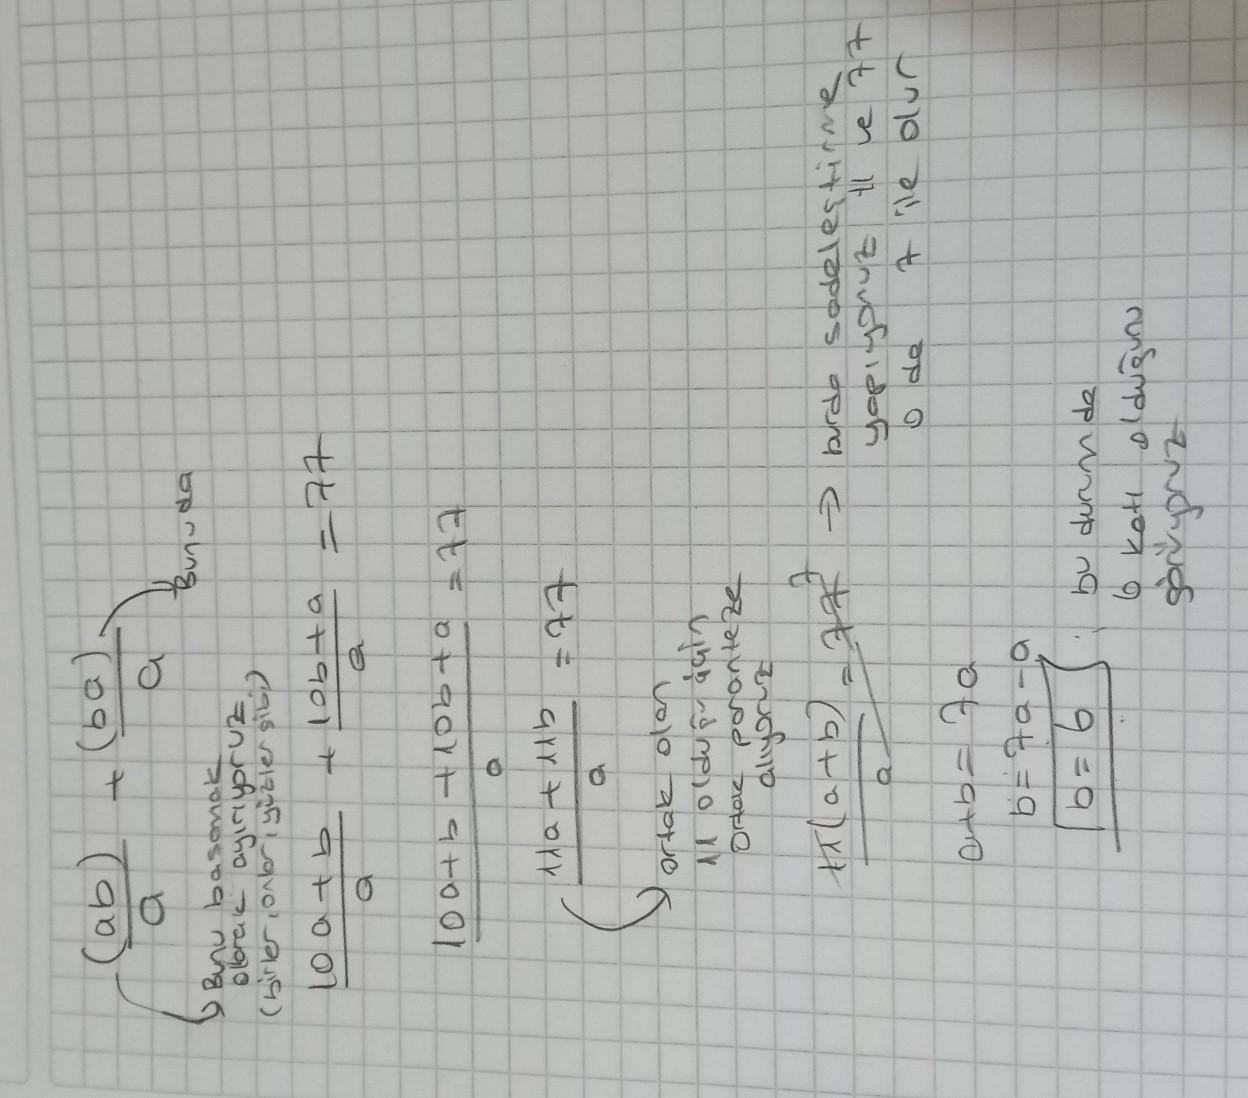 (ab)/a + (ba)/a
Bunu da
Bunu basamak
olarak ayırıyoruz
(birler, onlar, yüzler gibi)
10a+b/a + 10b+a/a = 77
10a+b+10b+a/a = 77
11a+11b/a = 77
ortak olan
11 olduğu için
ortak paranteze
alıyoruz
11(a+b)/a = 77 7 → burda sadeleştirme
yapıyoruz 11 ve 77
o da 7 ile olur
a+b = 7a
b = 7a-a
b = 6
bu durumda
6 katı olduğunu
görüyoruz